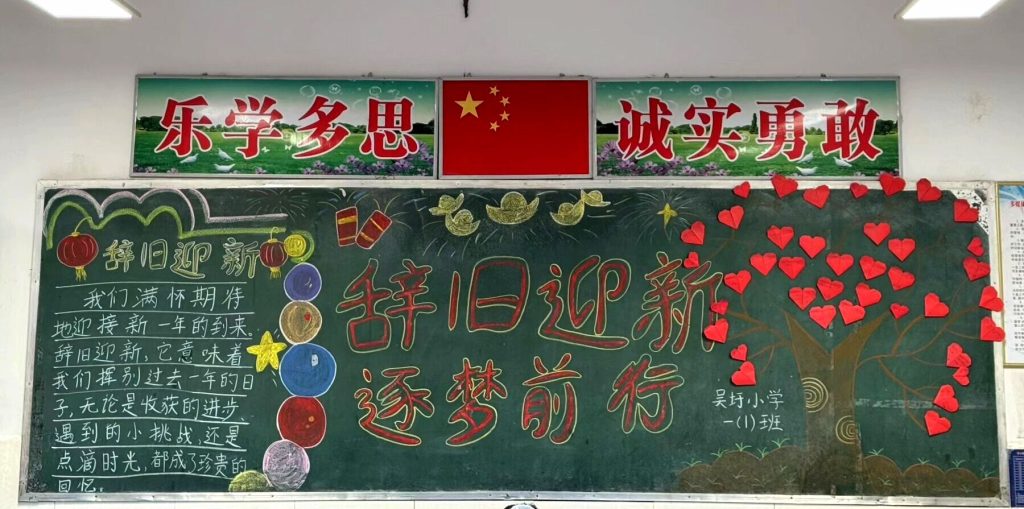 乐学多思
诚实勇敢
辞旧迎新
我们满怀期待
地迎接新一年的到来.
辞旧迎新,它意味着
我们挥别过去一年的日
子,无论是收获的进步,
遇到的小挑战,还是
点滴时光,都成了珍贵的
回忆.
辞旧迎新
逐梦前行
吴圩小学
一(1)班